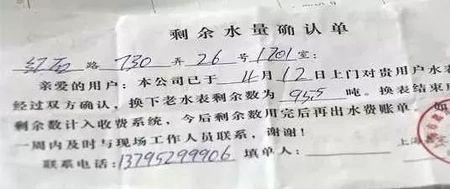 剩余水量确认单
红石路 730 弄 26 号 1701 室：
亲爱的用户：本公司已于 4月12日上门对贵用户水表
经过双方确认，换下老水表剩余数为 95.5 吨。换表结束
剩余数计入收费系统，今后剩余数用完后再出水费账单。如
一周内及时与现场工作人员联系，谢谢！
联系电话：13795299906 填单人： 上海